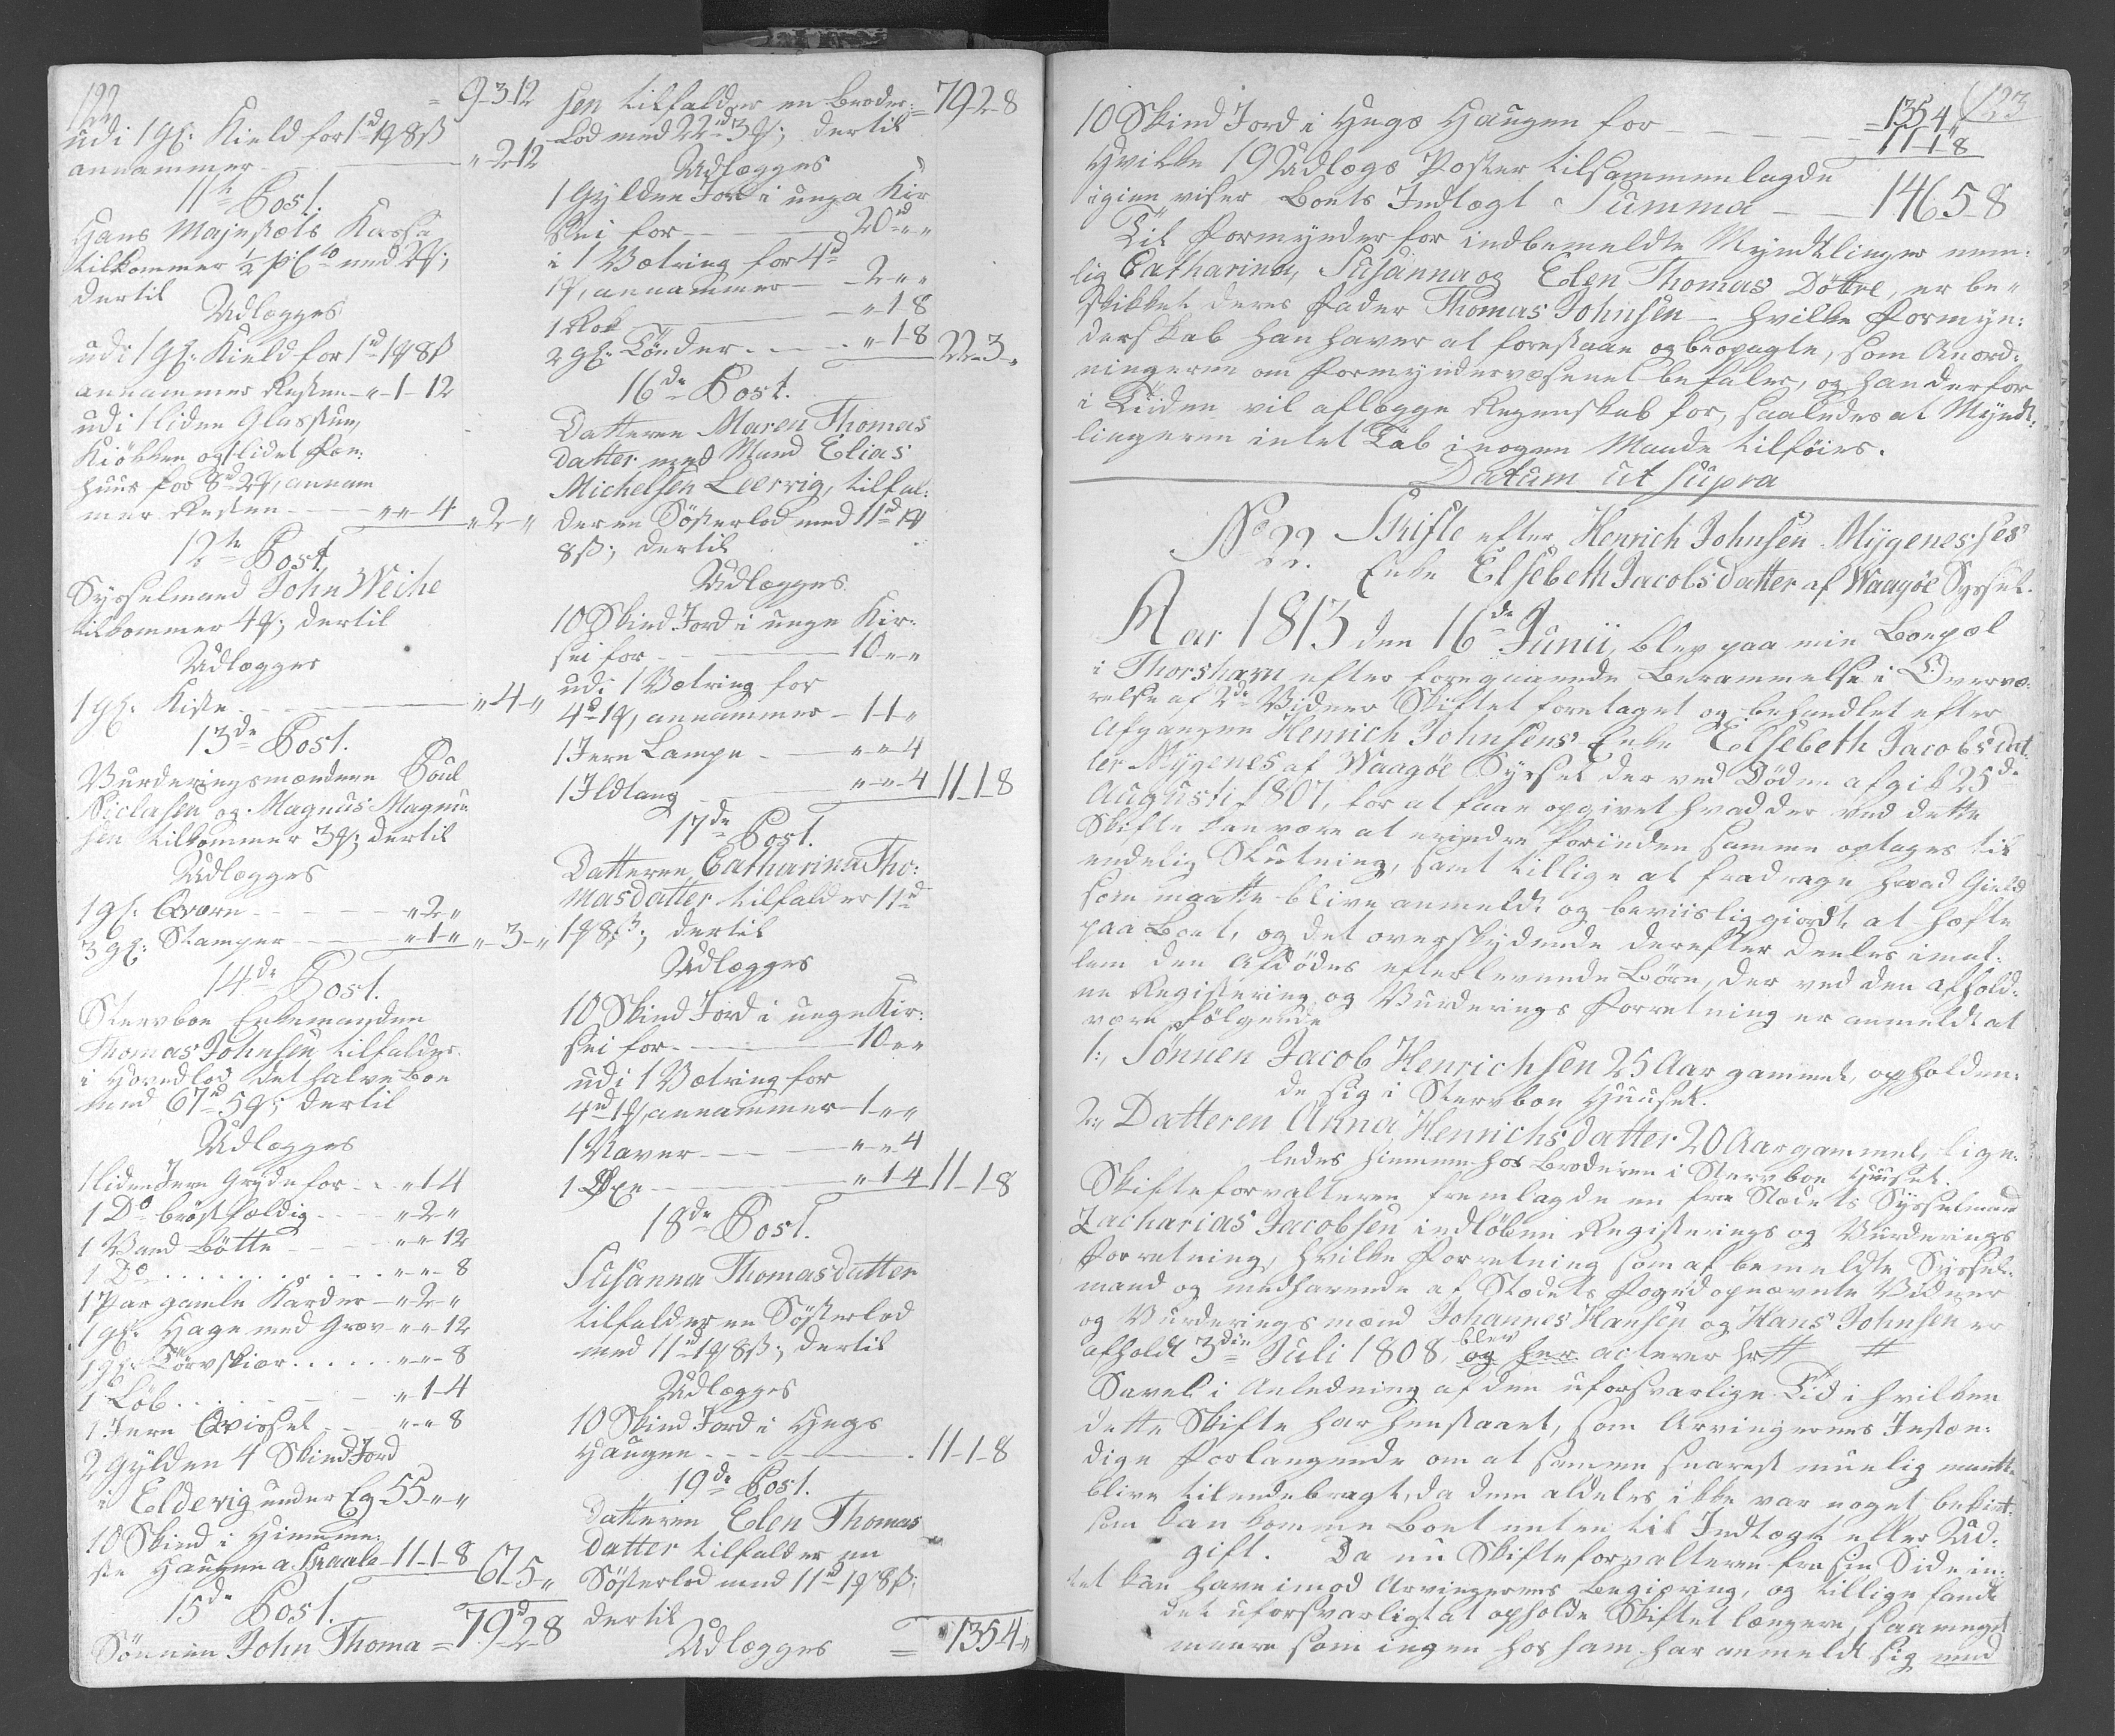 122
= 9-3-12
udi 1 gl: Kield for 1d 1 8ß
annammer " 2-12
11te Post.
Hans Majestæts Kassa
tilkommer ½ pCto med 2;
dertil
Udlægges
udi 1 gl: Kield for 1d 1 8ß
annammes Resten " 1-12
udi 1 liden Glasstue,
Kiökken og 1 lidet
huus for 8d 2, annam
mer Resten " " 4
" 2 "
12te Post
Sysselmand John Weihe
tilkommer 4; dertil
Udlægges
1 gl: Kiste " 4 "
13de Post.
Vurderingsmændene Poul
Niclasen og Magnus Magnu
sen tilkommer 3; dertil
Udlægges
1 gl: Qværn " 2 "
3 gl: Stamper " 1 " " 3 "
14de Post.
Stervboe Enkemanden
Thomas Johnsen tilfalder
i Hovedlod det halve Boe
med 67d 5; dertil
Udlægges
1 liden Jern Gryde for " 1-4
1 Do bröstfældig " 2 "
1 Vand Bötte " " 12
1 Do " " 8
1 Par gamle Karder " 2 "
1 gl: Hage med Grev " " 12
1 gl: Törvskiær " " 8
1 Löb " 1-4
1 Jern Qvissel " " 8
2 Gylden 4 Skind Jord
i Elderig under Eg 55 " "
10 Skind i Hiemme:
ste Haugen a Skaale 11-1-8
67-5 "
15de Post.
Sönnen John Thoma = 79d-2-8
sen tilfalder en Broder: = 79-2-8
Lod med 22d 3; dertil
Udlægges
1 Gylden Jord i unga Kir
kei for 20d " "
i 1 Vætring for 4d
1, annammer 2 " "
1 Rok " 1-8
2 gl: Tönder " 1-8
22-3 "
16de Post.
Datteren Maren Thomas
datter med Mand Elias
Michelsen Leervig, tilfal:
der en Sösterlod med 11d 1
8ß; dertil
Udlægges
10 Skind Jord i unge Kir:
kei for 10 " "
udi 1 Vætring for
4d 1, annammer 1-1 "
1 Jern Lampe " " 4
1 Ildtang " " 4 11-1-8
17de Post.
Datteren Catharina Tho:
masdatter tilfalder 11d
1 8ß; dertil
Udlægges
10 Skind Jord i unge Kir:
kei for 10 " "
udi 1 Vætring for
4d 1, annammer 1 " "
1 Naver " " 4
1 Öxe " 1-4 11-1-8
18de Post.
Susanna Thomasdatter
tilfalder en Sösterlod
med 11d 1 8ß; dertil
Udlægges
10 Skind Jord i Hegs
Haugen 11-1-8
19de Post.
Datteren Elen Thomas
datter tilfalder en
Sösterlod med 11d 1 8ß;
dertil
Udlægges = 135-4 "
123
= 135-4 "
10 Skind Jord i Hegs Haugen for 11-1-8
Hvilke 19 Udlægs Poster tilsammenlagde
igien viser Boets Indtægt Summa 146-5-8
Til Formynder for indbemeldte Myndtlinger nem:
lig Catharina, Susanna og Elen Thomas Döttre, er be:
skikket deres Fader Thomas Johnsen - hvilke Formyn:
derskab han haver at forestaae og beopagte, som Anord:
ningerne om Formyndervæsenet befaler, og han derfor
i Tiiden vil aflægge Regenskab for, saaledes at Myndt:
lingerne intet Tab i nogen Maade tilföies.
Datum ut supra
No 22. Skifte efter Henrich Johnsen Mygenes'ses
Enke Elsebeth Jacobsdatter af Waagöe Syssel.
Aar 1813 den 16de Junii, blev paa min Boepæl
i Thorshavn efter foregaaende Berammelse i Overvæ:
relse af 2de Vidner Skiftet foretaget og behandlet efter
Afgangne Henrich Johnsens Enke Elsebeth Jacobsdat
ter Mygenes af Waagöe Syssel der ved Döden afgik 25de
Augusti 1807, for at faae opgivet hvad der ved dette
Skifte kan være at erindre forinden samme optages til
endelig Slutning, samt tillige at fradrage hvad Gield
som maatte blive anmeldt og beviislig giordt, at hæfte
paa Boet, og det overskydende derefter deeles imel:
lem den Afdödes efterlevende Börn, der ved den afhold:
ne Registering og Vurderings Forretning er anmeldt at
være fölgende
1:, Sönnen Jacob Henrichsen 25 Aar gammel, opholden:
de sig i Stervboe Huuset.
2:, Datteren Anna Henrichsdatter 20 Aar gammel, lige:
ledes hiemme hos Broderen i Stervboe Huuset.
Skifteforvalteren fremlagde en fra Stædets Sysselmand
Zacharias Jacobsen indlöben Registerings og Vurderings
Forretning, hvilke Forretning som af bemeldte Syssel:
mand og medhavende af Stædets Foged opnævnte Vidner
og Vurderingsmænd Johannes Hansen og Hans Johnsen er
afholdt 3die Juli 1808, blev og her
Savel i Anledning af den uforsvarlige Tid i hvilken
dette Skifte har henstaaet, som Arvingernes Instæn:
dige Forlangende om at samme snarest muelig maatte
blive tilendebragt, da dem aldeles ikke var noget bekient
som kan komme Boet enten til Indtægt eller Ud:
gift. Da nu Skifteforvalteren fra sin Side in:
tet kan have imod Arvingernes Begiæring, og tillige fandt
det uforsvarligt at opholde Skiftet længere, saa meget
meere som ingen hos ham har anmeldt sig med